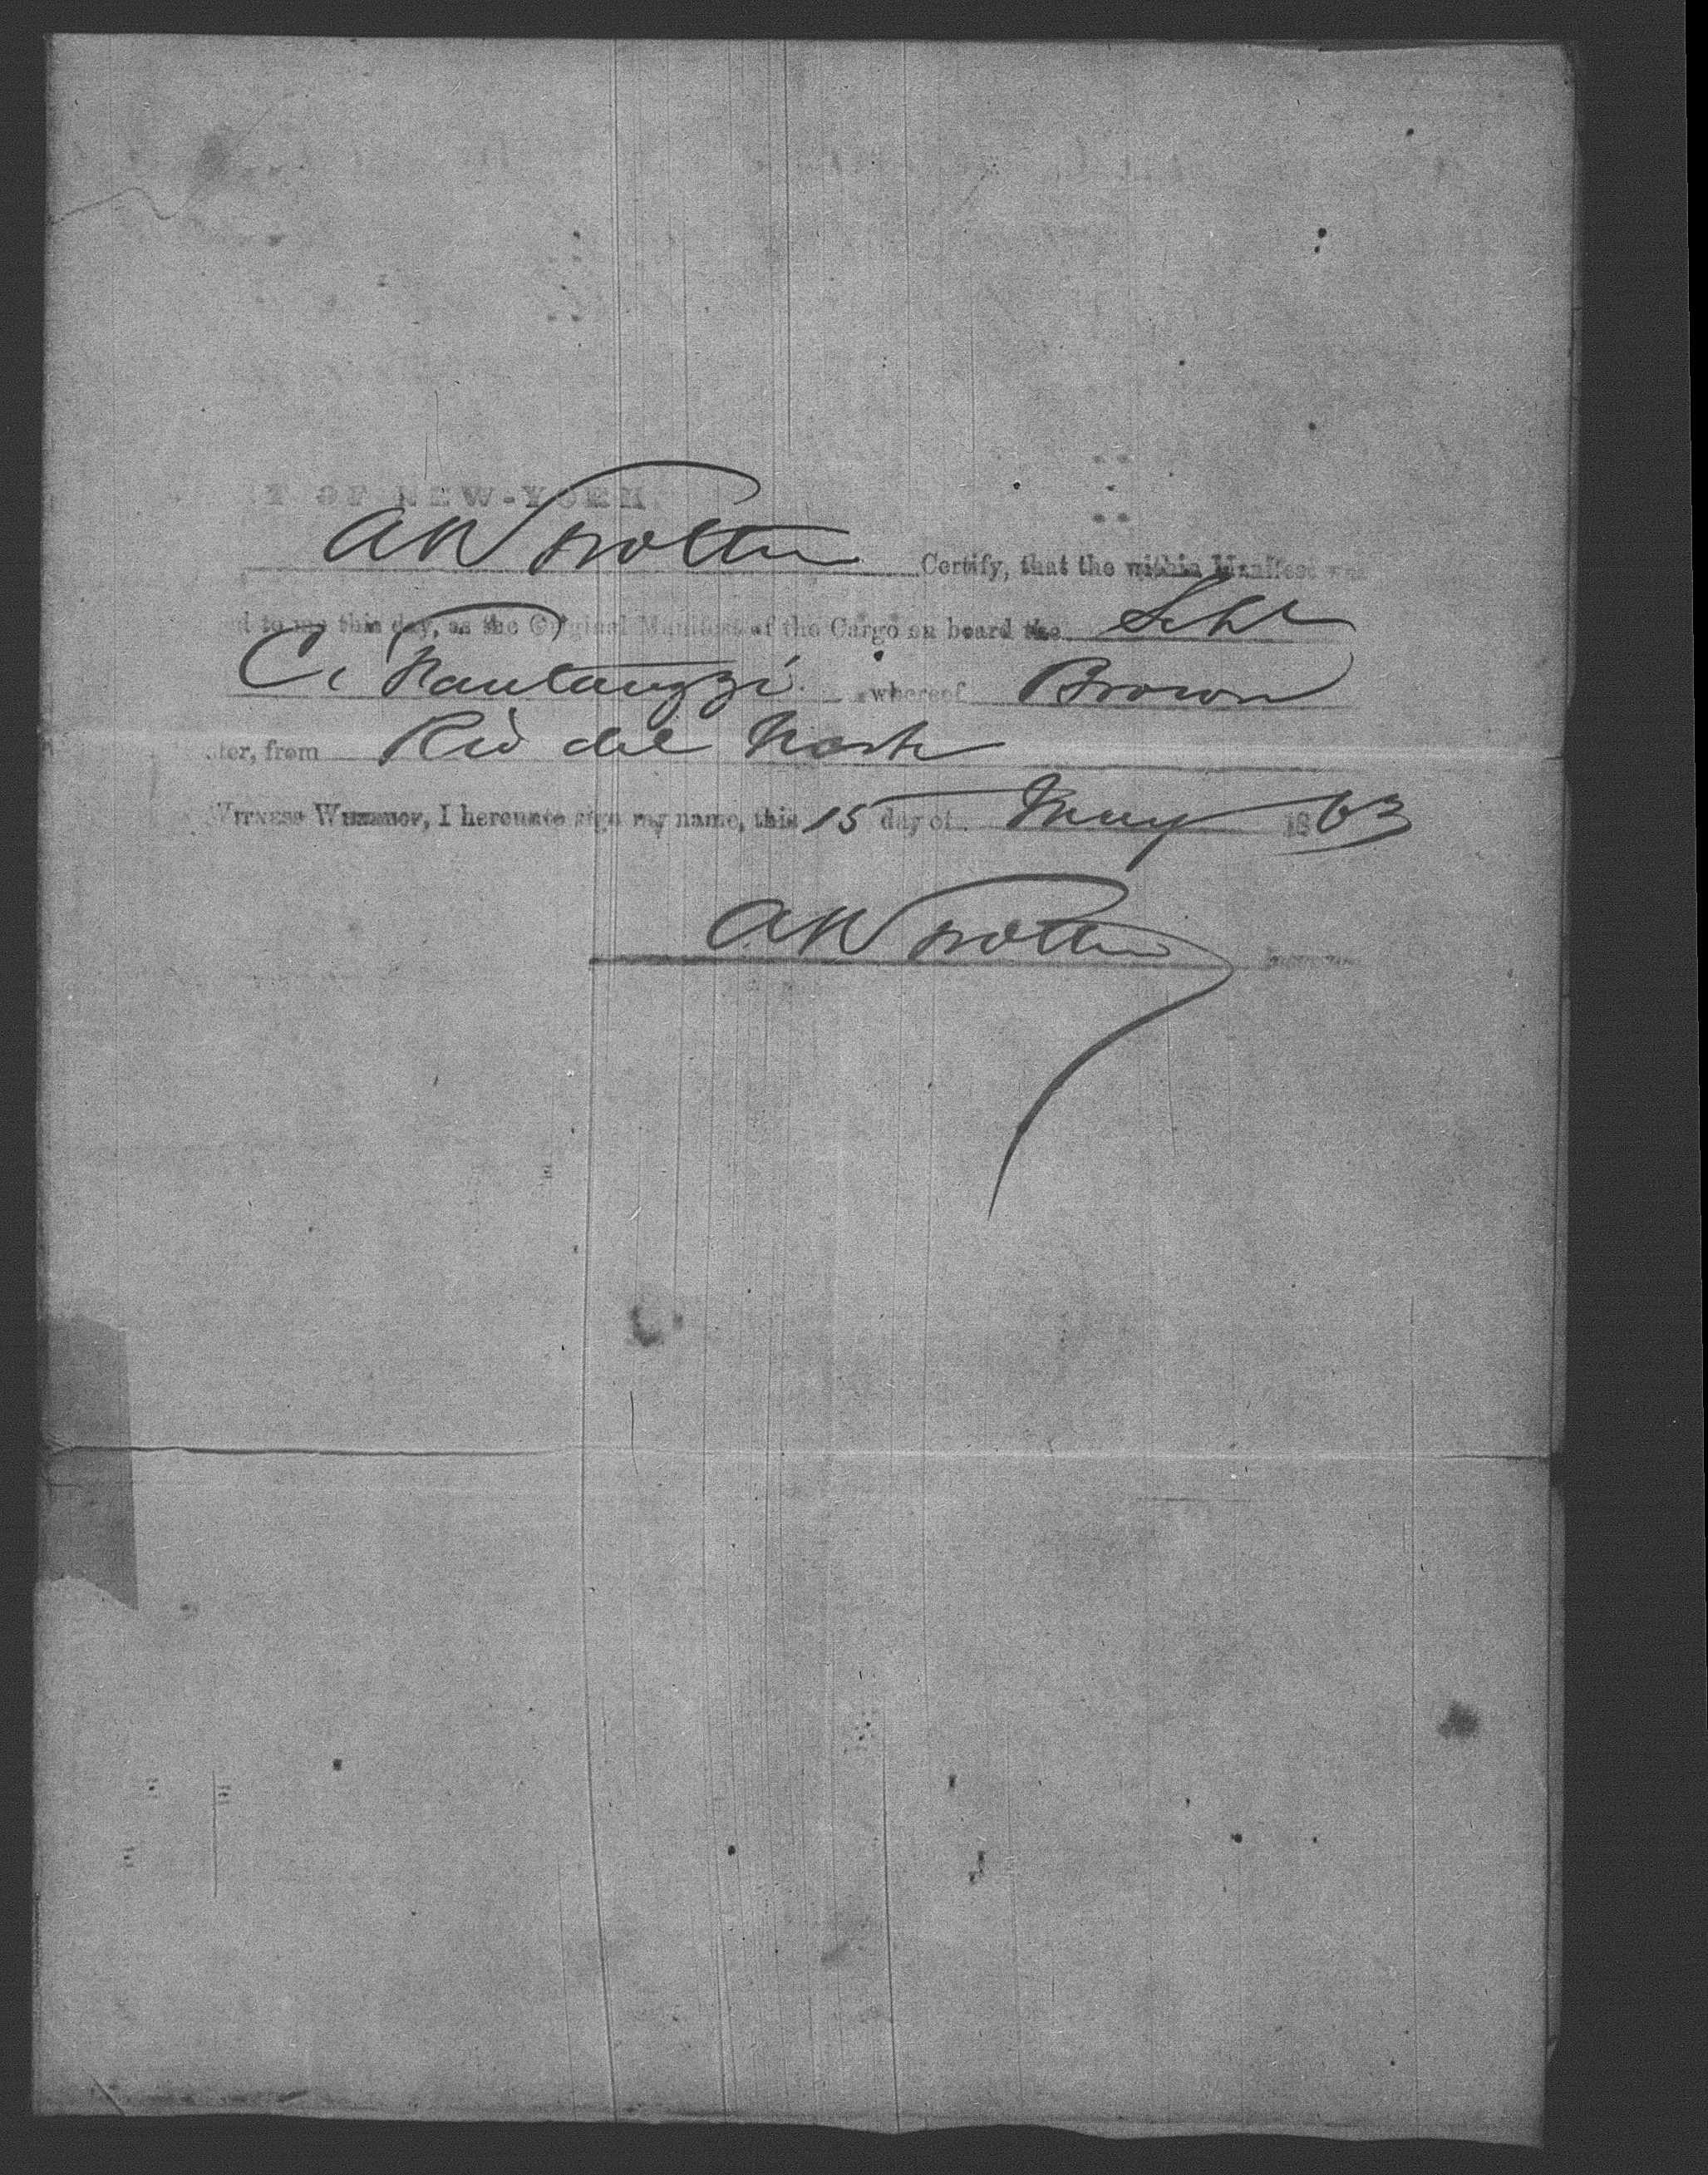 T OF NEW-YORK
A W Trotter Certify, that the within Manifest was
d to me this day, as the Original Manifest of the Cargo on board the Schr
C. Fantauzzi whereof Brown
ter, from Rio del Norte
WITNESS WHEREOF, I hereunto sign my name, this 15 day of May 1863
A W Trotter